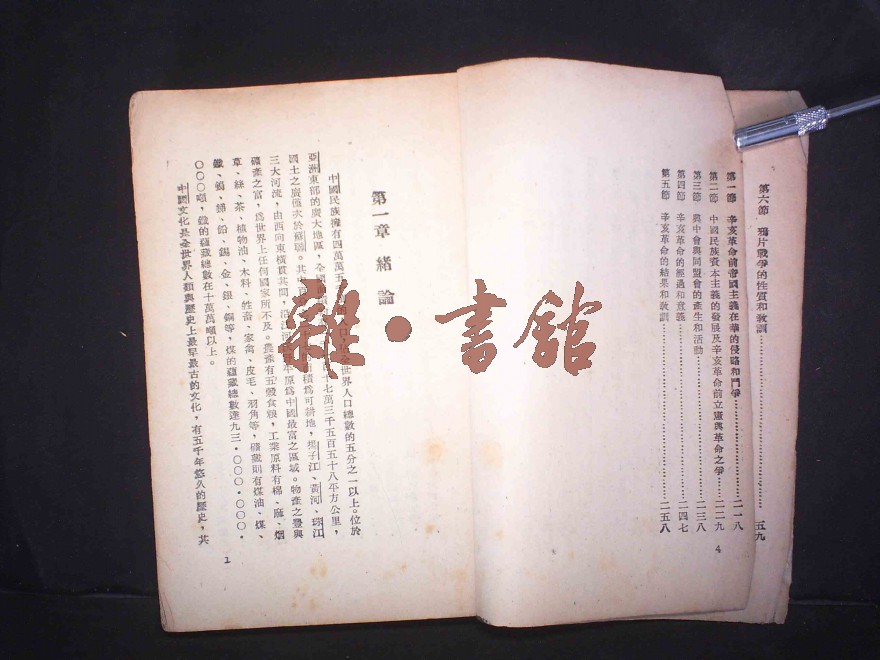 第六節 鴉片戰爭的性質和敎訓……五九
第一節 辛亥革命前帝國主義在華的侵略和鬥爭……二一八
第二節 中國民族資本主義的發展及辛亥革命前立憲與革命之爭……二二九
第三節 興中會與同盟會的產生和活動……二三八
第四節 辛亥革命的經過和意義……二四七
第五節 辛亥革命的結果和敎訓……二五八
4
第一章 緒論
中國民族擁有四萬萬五 世界人口總數的五分之一以上。位於
亞洲東部的廣大地區，全國 七萬三千五百五十八平方公里，
國土之廣僅次於蘇聯。其中 積爲可耕地，揚子江、黃河、珠江
三大河流，由西向東橫貫其間，沿江河 原爲中國最富之區域。物產之豐與
礦產之富，爲世界上任何國家所不及。農產有五穀食粮，工業原料有棉、蔴、烟
草、絲、茶、植物油、木料、牲畜、家禽、皮毛、羽角等，礦藏則有煤油、煤、
鐵、鎢、銻、鉛、錫、金、銀、銅等，煤的蘊藏總數達九三·〇〇〇·〇〇〇·
〇〇〇噸，鐵的蘊藏總數在十萬萬噸以上。
中國文化是全世界人類與歷史上最早最古的文化，有五千年悠久的歷史，其
1
雜·書館